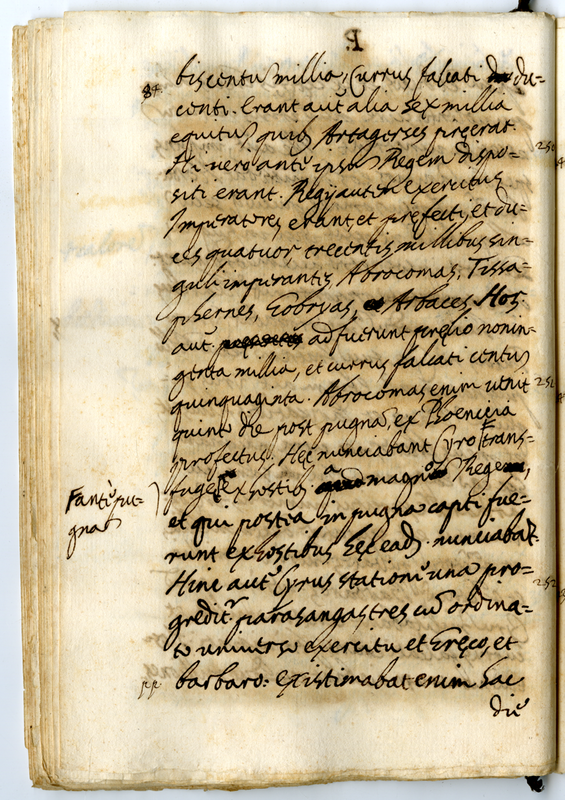 P.
84
biscentũ millia, Currus falcati du=
centi. Erant aut̃ alia sex millia
equitũ, quib; Artagerses preerat.
Hi vero ante ipsũ Regem dispo=
siti erant. Regij autem exercitus
Imperatores erant, et prefecti, et du=
ces quatuor, trecentis millibus sin=
guli imperantes, Abrocomas, Tissa=
phernes, Gobryas, Arbaces. Hor.
aut. adfuerunt prelio nonin=
genta millia, et currus falcati centũ
quinquaginta. Abrocomas enim venit
quinto die post pugnã, ex Phoenicia
profectus. Hec nunciabant Cyro trans=
fuge ex hostib; a magno Rege,
Fante pu=
gnã
et qui postea in pugna capti fue=
runt ex hostibus hec ead. nunciabãt.
Hinc aut̃ Cyrus stationẽ una pro=
gredit.r parasangas tres cũ ordina=
to universo exercitu et Greco, et
barbaro: existimabat enim hac
diẽ